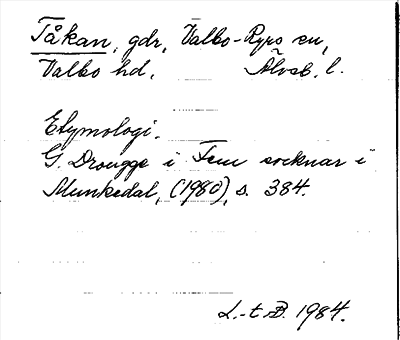 Tåkan, gdr, Valbo-Ryrs sn,
Valbo hd, Älvsb. l.
Etymologi.
G. Drougge i Fem socknar i
Munkedal, (1980), s. 384.
L.-t.B. 1984.